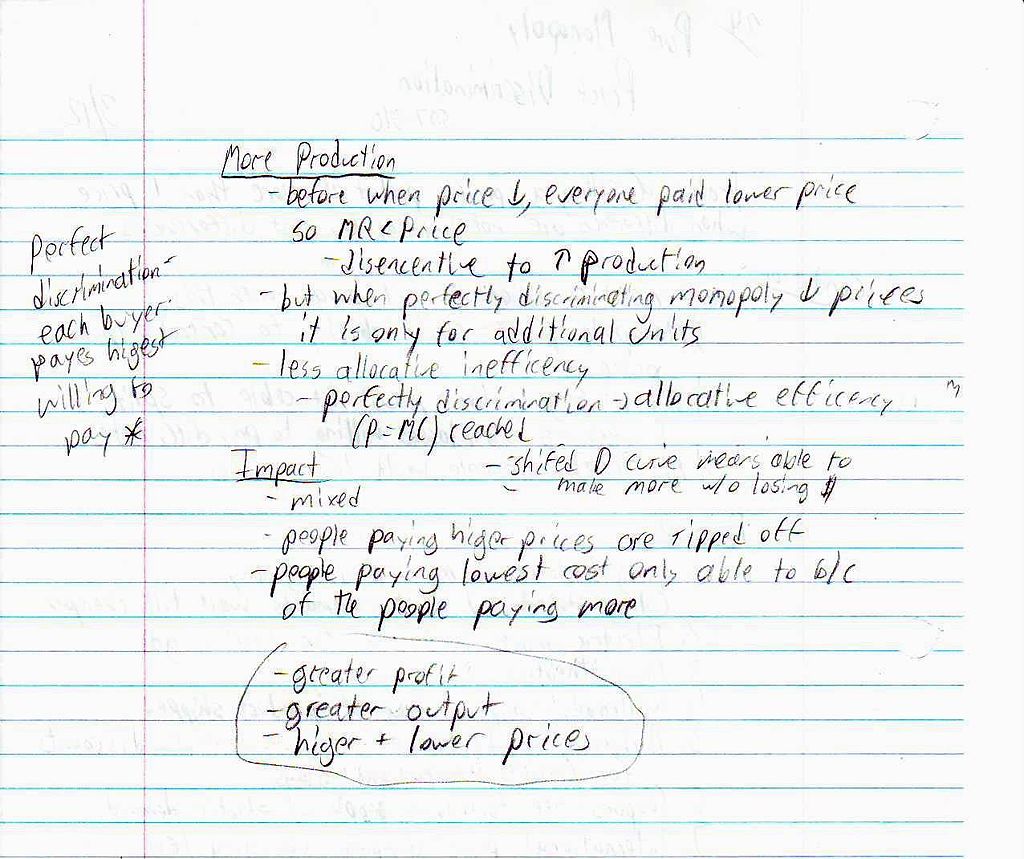 More Production
- before when price ↓, everyone paid lower price
so MR < Price
- disencentive to ↑ production
- but when perfectly discriminating monopoly ↓ prices
it is only for additional units
- less allocative inefficency
- perfectly discrimination → allocative efficency
(P=MC) reached
- shifed D curve means able to
- make more w/o losing $
Perfect
discrimination-
each buyer
payes higest
willing to
pay *
Impact
- mixed
- people paying higer prices are ripped off
- people paying lowest cost only able to b/c
of the people paying more
- greater profit
- greater output
- higer + lower prices